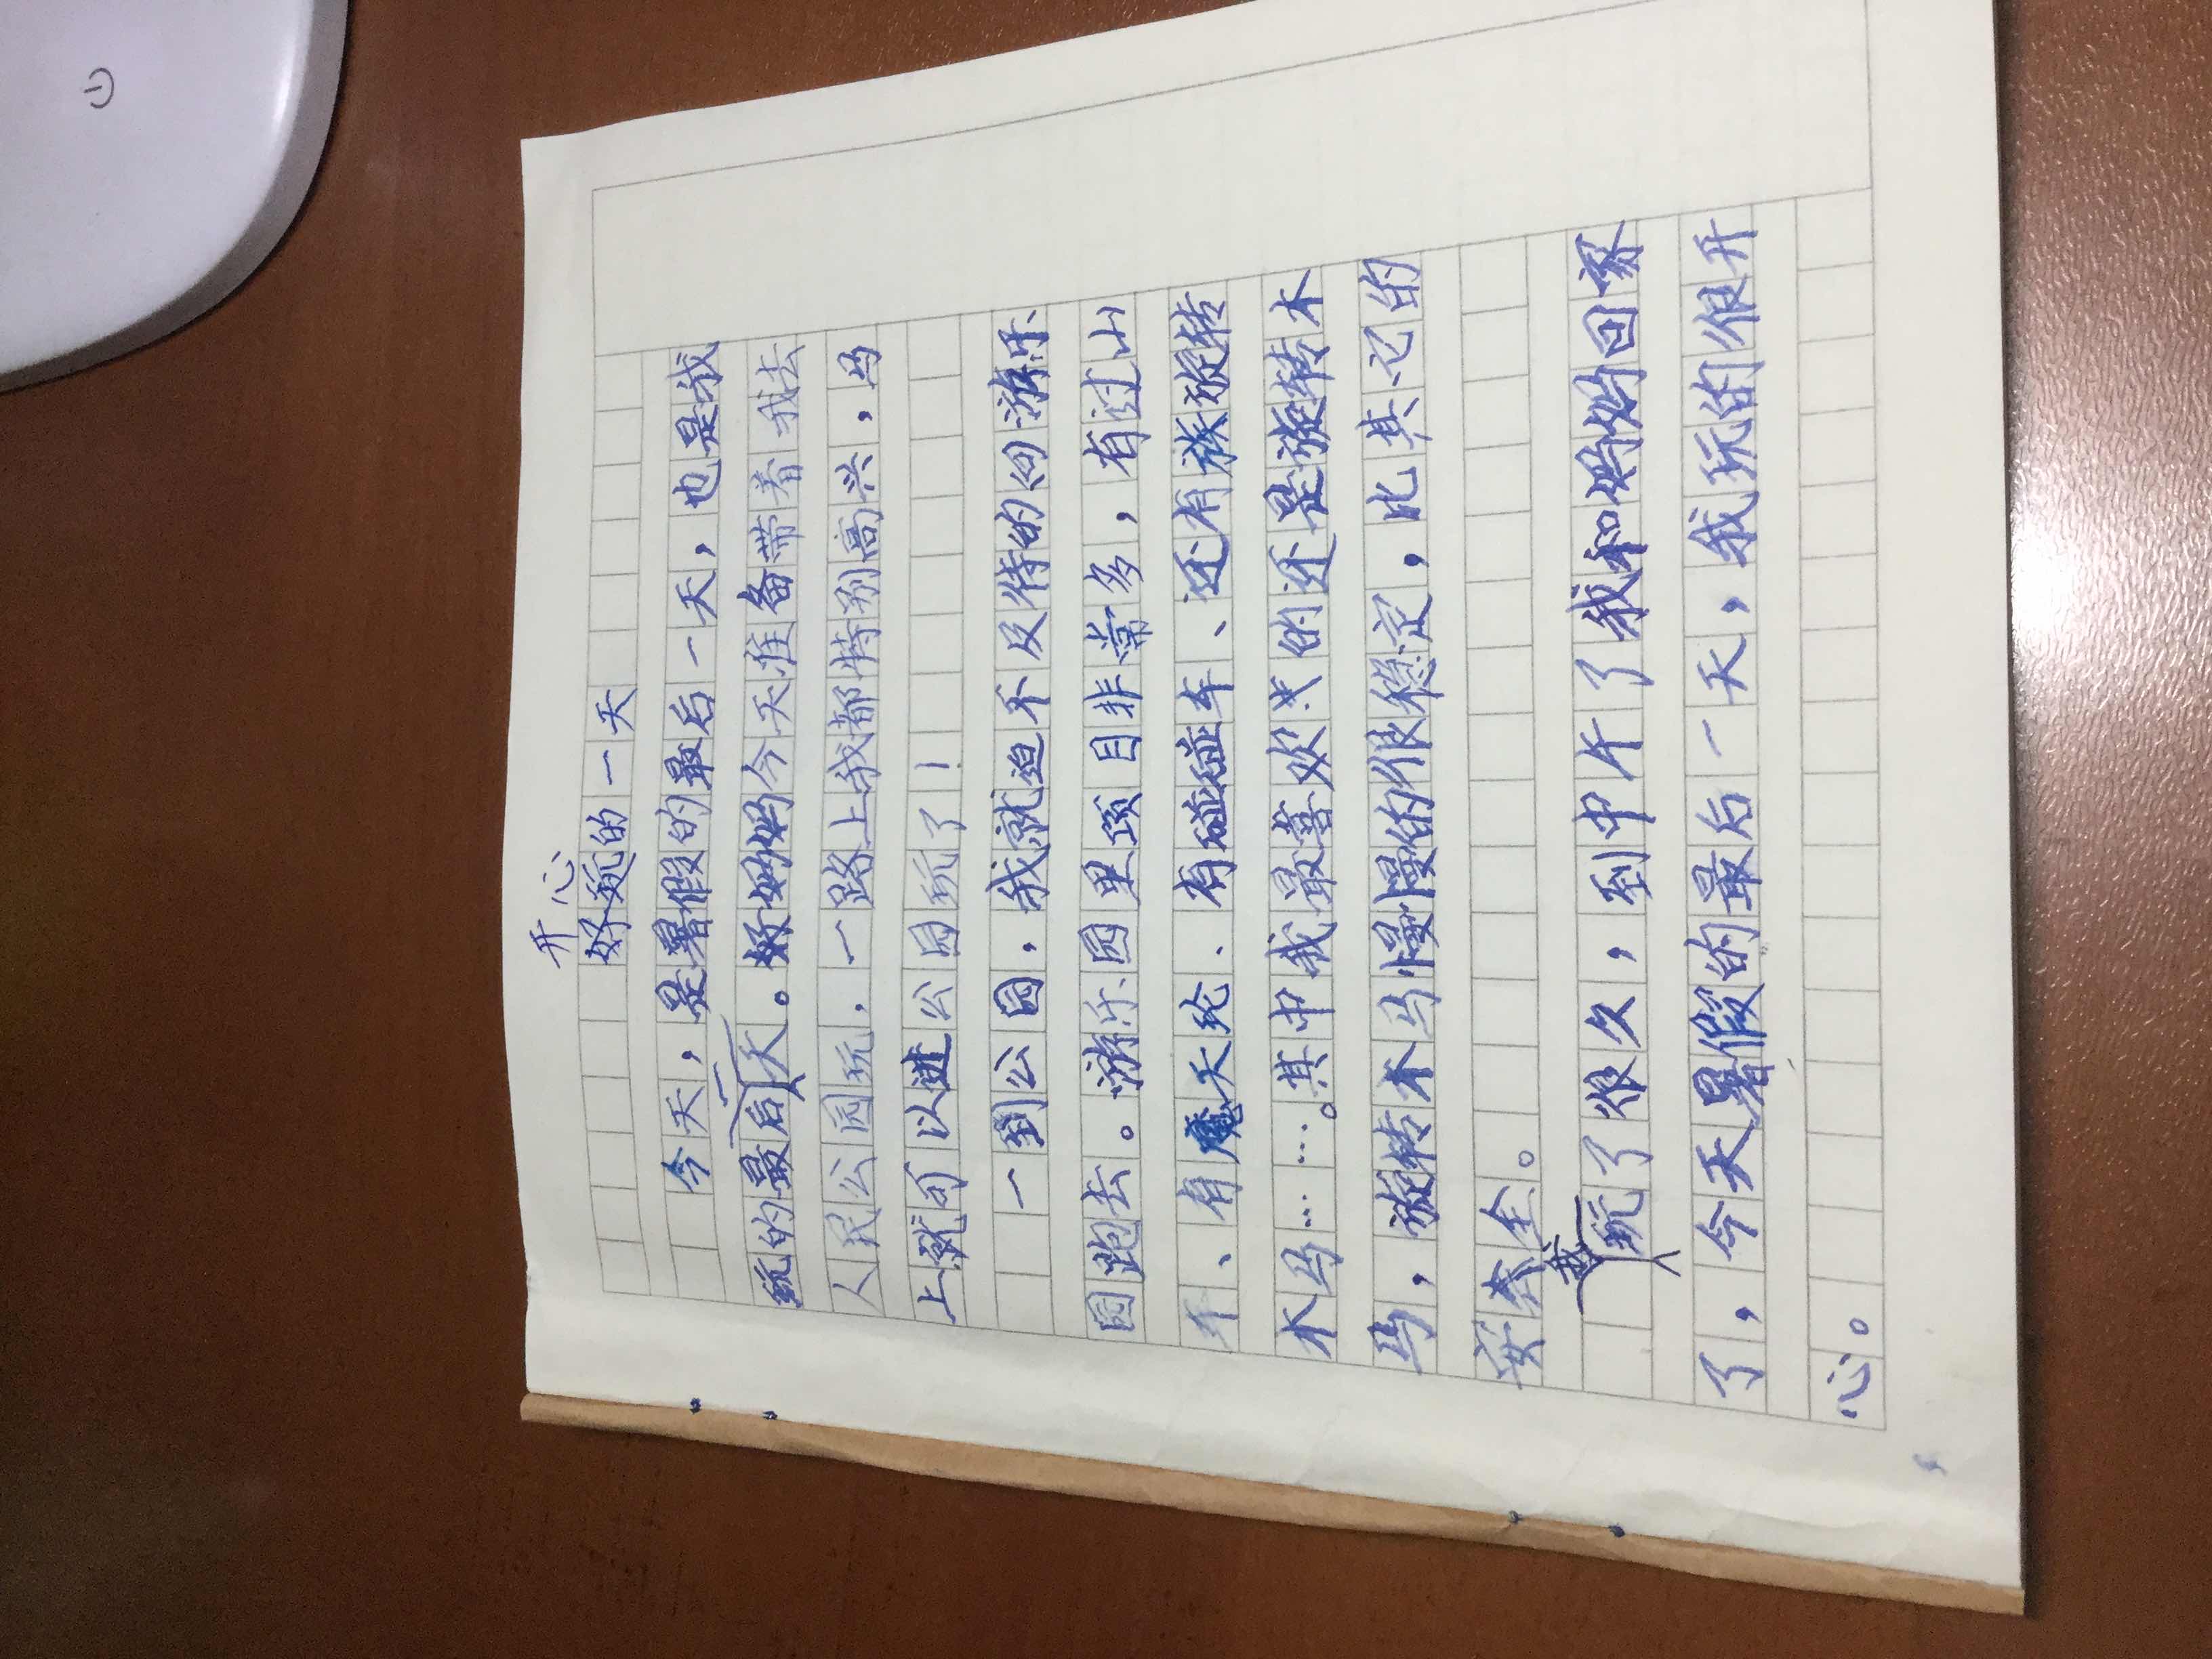 开心
好玩的一天
今天，是暑假的最后一天，也是我
玩的最后一天。好妈妈今天准备带着我去
人民公园玩，一路上我都特别高兴，马
上就可以进公园玩了！
一到公园，我就迫不及待的向游乐
园跑去。游乐园里项目非常多，有过山
车、有魔天轮、有碰碰车、还有族旋转
木马……。其中我最喜欢的还是旋转木
马，旋转木马慢慢的很稳定，比其它的
安全。
我
玩了很久，到中午了我和妈妈回家
了，今天暑假的最后一天，我玩的很开
心。